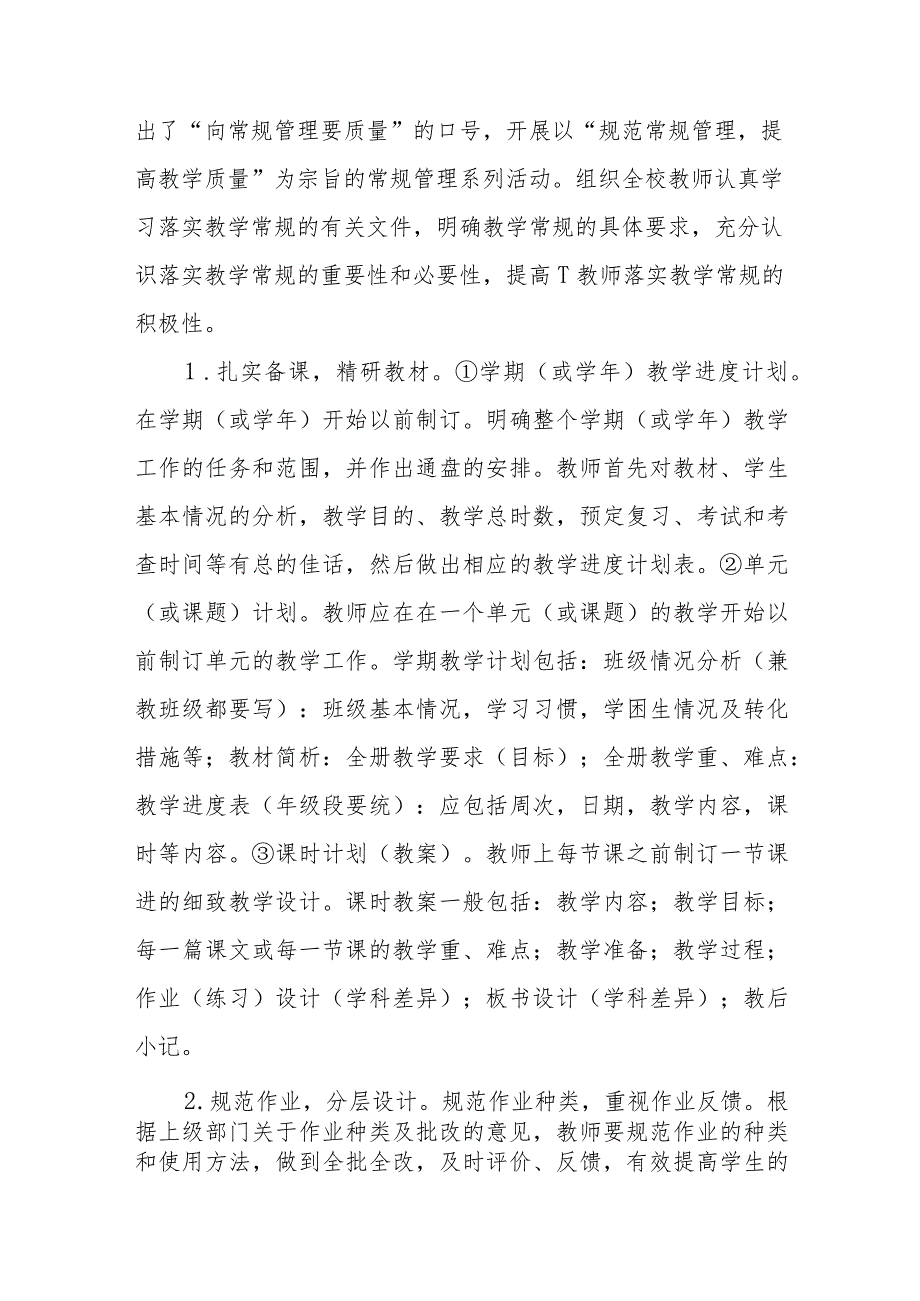 出了“向常规管理要质量”的口号，开展以“规范常规管理，提
高教学质量”为宗旨的常规管理系列活动。组织全校教师认真学
习落实教学常规的有关文件，明确教学常规的具体要求，充分认
识落实教学常规的重要性和必要性，提高T教师落实教学常规的
积极性。
1.扎实备课，精研教材。①学期（或学年）教学进度计划。
在学期（或学年）开始以前制订。明确整个学期（或学年）教学
工作的任务和范围，并作出通盘的安排。教师首先对教材、学生
基本情况的分析，教学目的、教学总时数，预定复习、考试和考
查时间等有总的佳话，然后做出相应的教学进度计划表。②单元
（或课题）计划。教师应在在一个单元（或课题）的教学开始以
前制订单元的教学工作。学期教学计划包括：班级情况分析（兼
教班级都要写）：班级基本情况，学习习惯，学困生情况及转化
措施等；教材简析：全册教学要求（目标）；全册教学重、难点：
教学进度表（年级段要统）：应包括周次，日期，教学内容，课
时等内容。③课时计划（教案）。教师上每节课之前制订一节课
进的细致教学设计。课时教案一般包括：教学内容；教学目标；
每一篇课文或每一节课的教学重、难点；教学准备；教学过程；
作业（练习）设计（学科差异）；板书设计（学科差异）；教后
小记。
2.规范作业，分层设计。规范作业种类，重视作业反馈。根
据上级部门关于作业种类及批改的意见，教师要规范作业的种类
和使用方法，做到全批全改，及时评价、反馈，有效提高学生的